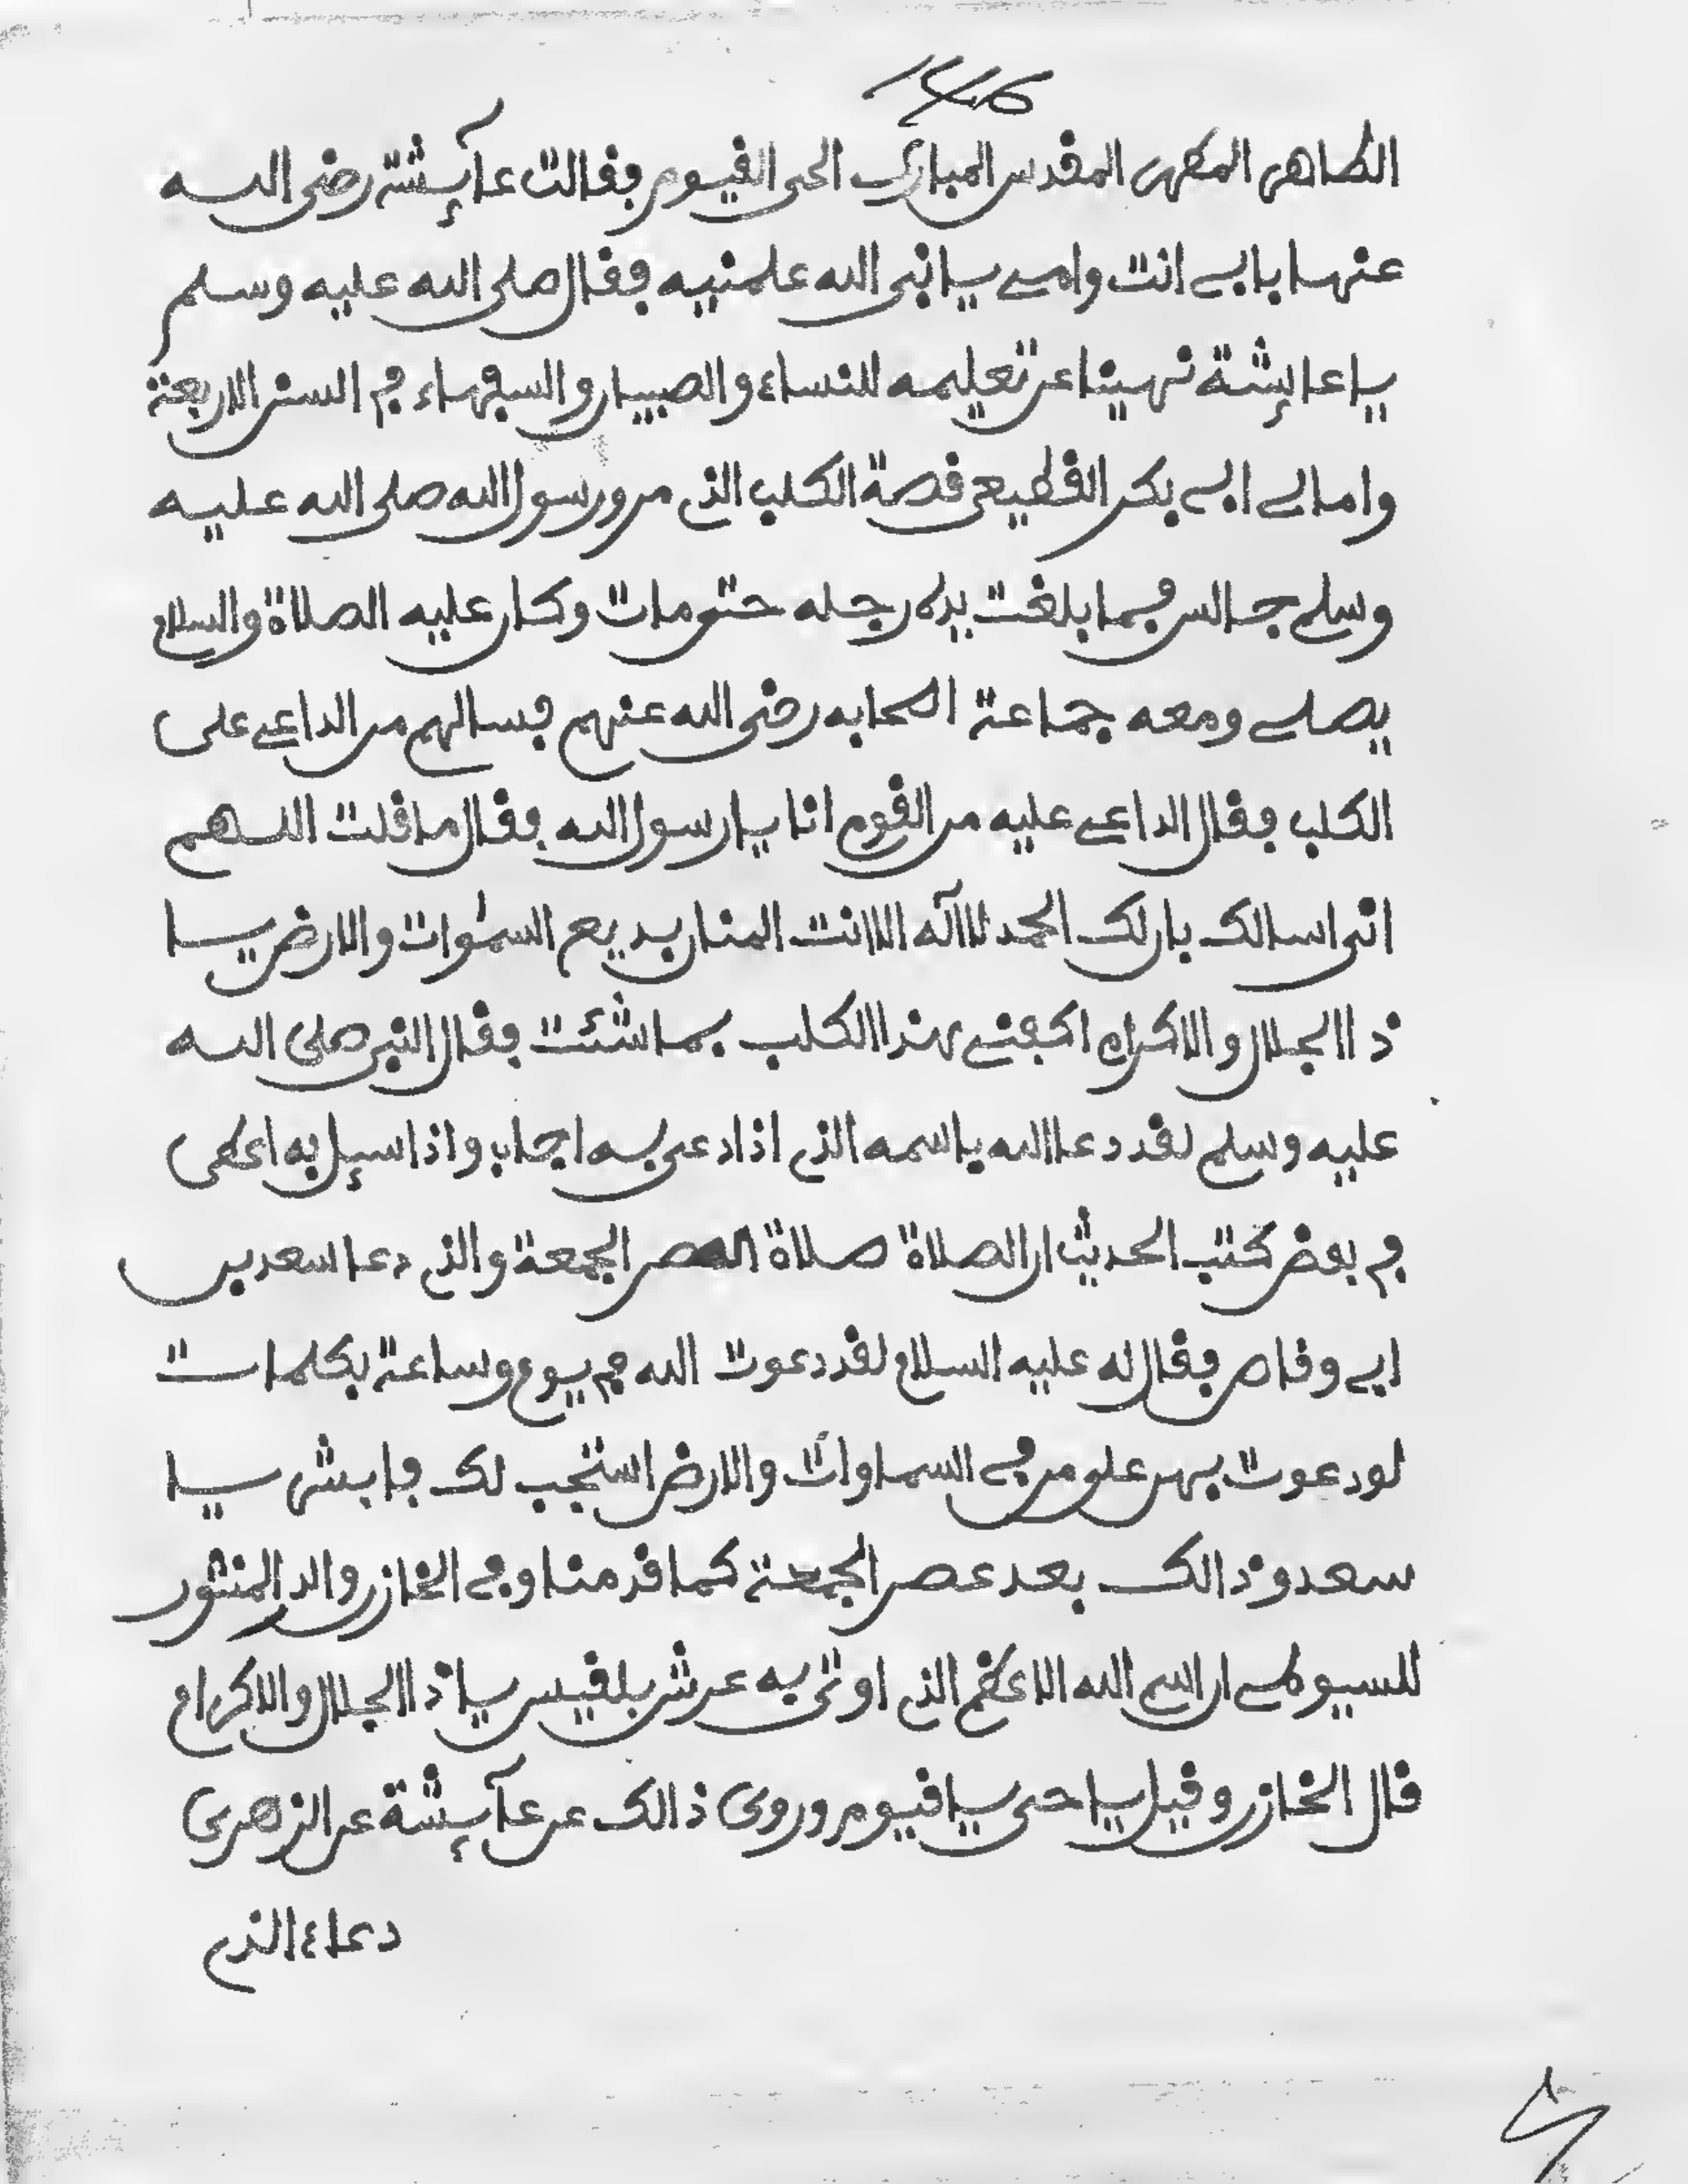 الطاهر المطهر المقدس المبارك الحي القيوم فقالت عآيشة رضى الله
عنها بابي انت وامي يا نبى الله علمنيه فقال صلى الله عليه وسلم
يا عايشة نهينا عن تعليمه للنساء والصبيان والسفهاء وفي السنن الاربعة
وامالي ابي بكر القطيعى قصة الكلب الذي مر ورسول الله صلى الله عليه
وسلم جالس فما بلغت يده رجله حتى مات وكان عليه الصلاة والسلام
يصلي ومعه جماعة الصحابه رضى الله عنهم فسالهم من الداعي على
الكلب فقال الداعي عليه من القوم انا يا رسول الله فقال ما قلت اللهم
انى اسالك بان لك الحمد لاآله الا انت المنان بديع السموات والارض يا
ذا الجلال والاكرام اكفني هذا الكلب بما شئت فقال النبي صلى الله
عليه وسلم لقد دعا الله باسمه الذي اذا دعى به اجاب واذا سيل به اعطى
في بعض كتب الحديث ان الصلاة صلاة العصر الجمعة والذي دعا سعد بن
ابي وقاص فقال له عليه السلام لقد دعوت الله في يوم وساعة بكلمات
لو دعوت بهن على من في السماوات والارض استجب لك فابشر يا
سعد وذالك بعد عصر الجمعة كما قدمنا وفي الخازن والدر المنثور
للسيوطي ان اسم الله الاعظم الذي اوتى به عرش بلقيس يا ذا الجلال والاكرام
قال الخازن وقيل يا حى يا قيوم وروى ذالك عن عآيشة عن الزهرى
دعاء الذي